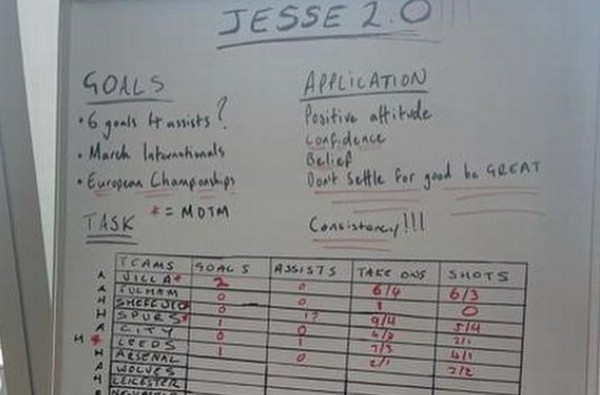 JESSE 2.0!!!
GOALS
• 6 goals 4 assists?
• March Internationals
• European Championships
* = MOTM
APPLICATION
Positive attitude
Confidence
Belief
Don't settle for good be GREAT
Consistency!!!
TASK
TEAMS GOALS ASSISTS TAKE ONS SHOTS
A VILLA* 2 0 6/4 6/3
A FULHAM 0 0 1 0
H
H SPURS* 1 1? 9/4 5/4
A CITY 0 0 2/1
H * LEEDS 0 1 7/3 4/1
H ARSENAL 1 0 2/1 2/2
A WOLVES
H LEICESTER